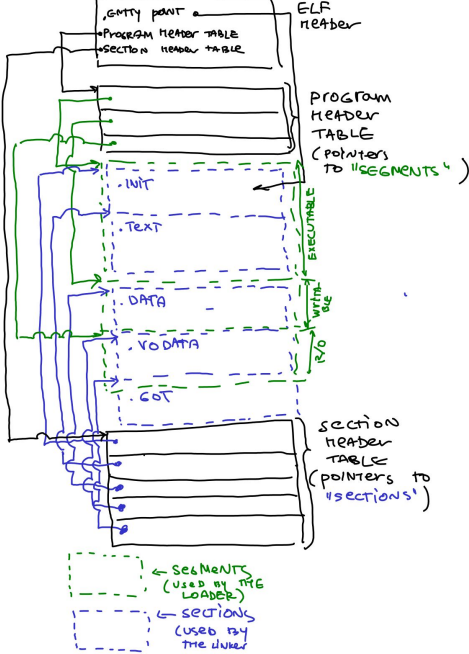 .ENTRY POINT
PROGRAM HEADER TABLE
SECTION HEADER TABLE
ELF
HEADER
PROGRAM
HEADER
TABLE
(POINTERS
TO "SEGMENTS")
.INIT
.TEXT
EXECUTABLE
.DATA
WRITA-
BLE
.RODATA
R/O
.GOT
SECTION
HEADER
TABLE
(POINTERS TO
"SECTIONS")
← SEGMENTS
(USED BY THE
LOADER)
← SECTIONS
(USED BY
THE LINKER